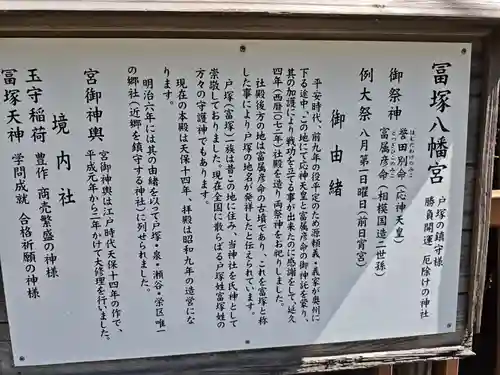 冨塚八幡宮
戸塚の鎮守様
勝負開運 厄除けの神社
御祭神
誉田別命(応神天皇)
ほんだわけのみこと
富属彦命(相模国造二世孫)
とつぎひこのみこと
例大祭 八月第一日曜日(前日宵宮)
御由緒
平安時代、前九年の役平定のため源頼義・義家が奥州に
下る途中、この地にて応神天皇と富属彦命の御神託を蒙り、
其の加護により戦功を立てる事が出来たのに感謝をして、延久
四年(西暦〇七二年)社殿を造り両祭神をお祀りしました。
社殿後方の地は富属彦命の古墳であり、これを富塚と称
した事により戸塚の地名が発祥したと伝えられています。
戸塚(富塚)一族は昔この地に住み、当神社を氏神として
崇敬しておりました。現在全国に散らばる戸塚姓富塚姓の
方々の守護神でもあります。
現在の本殿は天保十四年、拝殿は昭和九年の造営にな
ります。
明治六年には其の由緒を以つて戸塚・泉・瀬谷・栄区唯一
の郷社(近郷を鎮守する神社)に列せられました。
宮御神輿
宮御神輿は江戸時代天保十四年の作で、
平成元年から二年かけて大修理を行いました。
境内社
玉守稲荷 豊作 商売繁盛の神様
冨塚天神 学問成就 合格祈願の神様